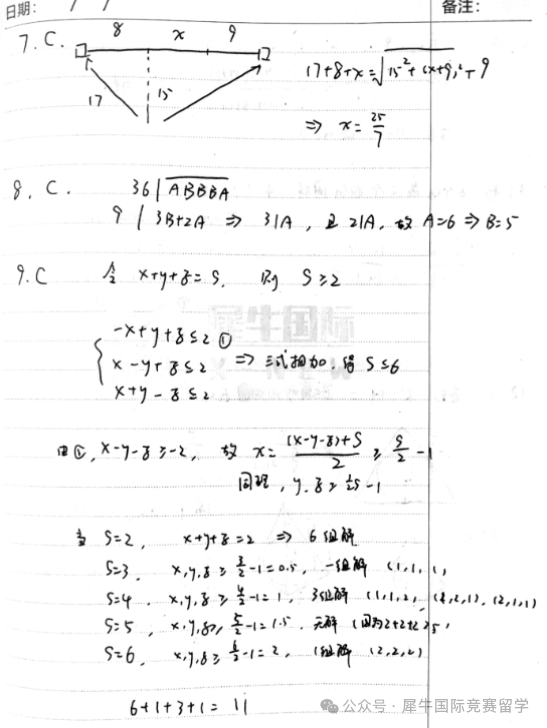 日期:
备注:
7. C.
8 x 9
17 15
17+8+x=√(15²+(x+9)²)+9
⇒ x=25/7
8. C. 36 | ABBBA
9 | 3B+2A ⇒ 3|A, 且 2|A, 故 A=6 ⇒ B=5
9. C 令 x+y+z=S. 则 S≥2
{ -x+y+z≤2 ①
x-y+z≤2 ⇒ 三式相加, 得 S≤6
x+y-z≤2
由①, x-y-z≥-2, 故 x= ((x-y-z)+S)/2 ≥ S/2 -1
同理, y, z≥ ½S-1
当 S=2, x+y+z=2 ⇒ 6组解
S=3. x,y,z≥ 3/2-1=0.5, 一组解 (1,1,1)
S=4. x,y,z≥ 4/2-1=1, 3组解 (1,1,2), (1,2,1), (2,1,1)
S=5, x,y,z≥ 5/2-1=1.5. 无解 (因为2+2+2>5)
S=6, x,y,z≥ 6/2-1=2, 1组解 (2,2,2)
6+1+3+1= 11
公众号·犀牛国际竞赛留学